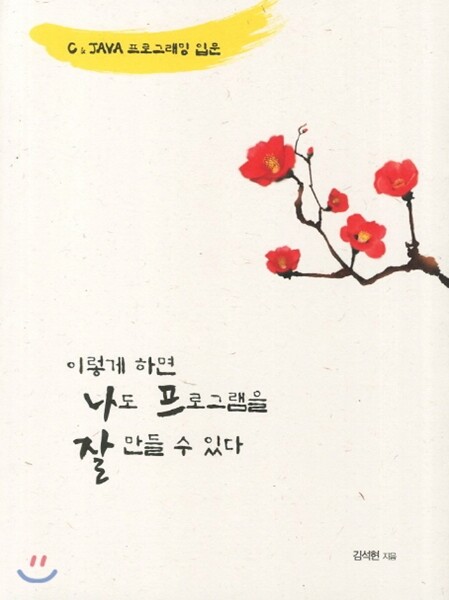 C & JAVA 프로그래밍 입문
이렇게 하면
나도 프로그램을
잘 만들 수 있다
김석현 지음